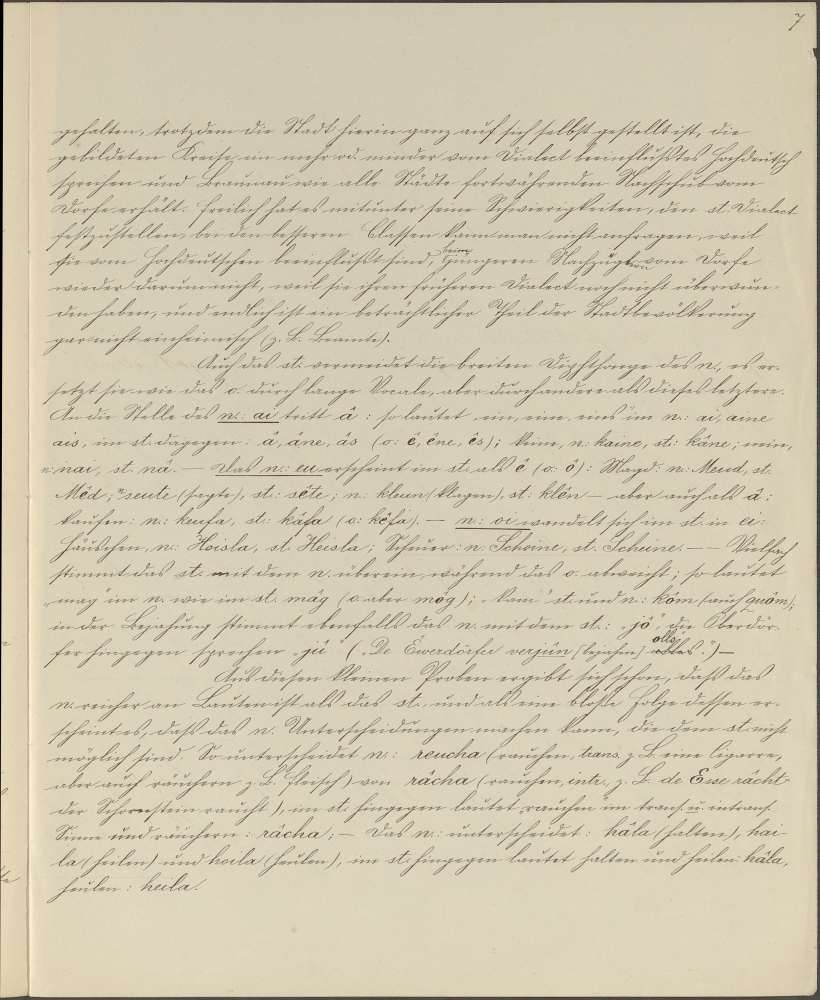 7
gehalten, trotzdem die Stadt hierin ganz auf sich selbst gestellt ist, die
gebildeten Kreise ein mehr od. minder vom Dialect beeinflußtes Hochdeutsch
sprechen und Braunau wie alle Städte fortwährenden Nachschub vom
Dorfe erhält. Freilich hat es mitunter seine Schwierigkeiten, den st. Dialect
festzustellen, bei den besseren Classen kann man nicht anfragen, weil
sie vom Hochdeutschen beeinflußt sind, beim jüngeren Nachzüglern vom Dorfe
wieder darum nicht, weil sie ihren früheren Dialect noch nicht überwun-
den haben, und endlich ist ein beträchtlicher Theil der Stadtbevölkerung
gar nicht einheimisch (z. B. Beamte).
Auch das st. vermeidet die breiten Diphthonge des n., es er-
setzt sie wie das o. durch lange Vocale, aber durch andere als dieses letztere.
An die Stelle des n.: ai tritt â: so lautet ein, eine, eins im n.: ai, aine
ais, im st. dagegen: â, âne, âs (o: ê, êne, ês); kein, n.: kaine, st.: kâne; mein,
n.: mai, st. nâ. — Das n.: eu erscheint im st. als ê (o: ô): Magd: n.: Meud, st.
Mêd; n.: seute (sagte), st.: sête; n.: kleun (klagen), st: klên — aber auch als â:
kaufen: n.: keufa, st.: kâfa (o: kêfa). — n.: oi wandelt sich im st. in ei:
Häuschen, n.: Hoisla, st. Heisla; Scheuer: n.: Schoine, st. Scheine. — — Vielfach
stimmt das st. mit dem n. überein, während das o. abweicht; so lautet
„mag" im n. wie im st. mâg (o. aber môg); „kam" st. und n.: kôm (auch quôm);
in der Bejahung stimmt ebenfalls das n. mit dem st.: „jô", die Oberdör-
fer hingegen sprechen „jû" („De Êwerdörfer verjûn [bejahen] olls alles.") —
Aus diesen kleinen Proben ergibt sich schon, daß das
n. reicher an Lauten ist als das st. und als eine bloße Folge dessen er-
scheint es, daß das n. Unterscheidungen machen kann, die dem st. nicht
möglich sind. So unterscheidet n.: reucha (rauchen, trans. z. B. eine Cigarre,
aber auch räuchern z. B. Fleisch) von râcha (rauchen, intr., z. B. de Esse râcht
der Schornstein raucht), im st. hingegen lautet rauchen im trans. u. intrans.
Sinne und räuchern: râcha; — Das n.: unterscheidet: hâla (halten), hai-
la (heilen) und hoila (heulen), im st. hingegen lautet halten und heilen: hâla,
heulen: heila.